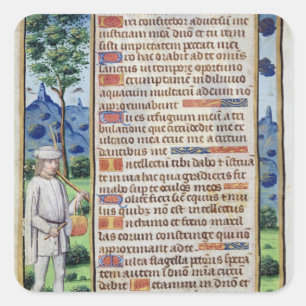 Dixi confitebor adversum me
iniusticiam meam dn̄o et tu remi
sisti impietatem peccati mei
Pro hac orabit ad te omnis
sanctus in tempore oportuno
Verumptamen in diluvio
aquarum multarum ad eum no
approximabunt
Tu es refugium meum a tri
bulatione que circumdedit me ex
ultatio mea erue me a circum
dantibus me
Intellectū tibi dabo et istrua
te in via hac qua gradieris fir
mabo sup te oculos meos
Nolite fieri sicut equus et mu
lus quibz non est intellectus
In chamo et freno maxil
las eorum constringe qui no
approximant ad te
Multa flagella pctoris spera
tem autem ī dn̄o mīa circū
dabit Letamini in dn̄o et